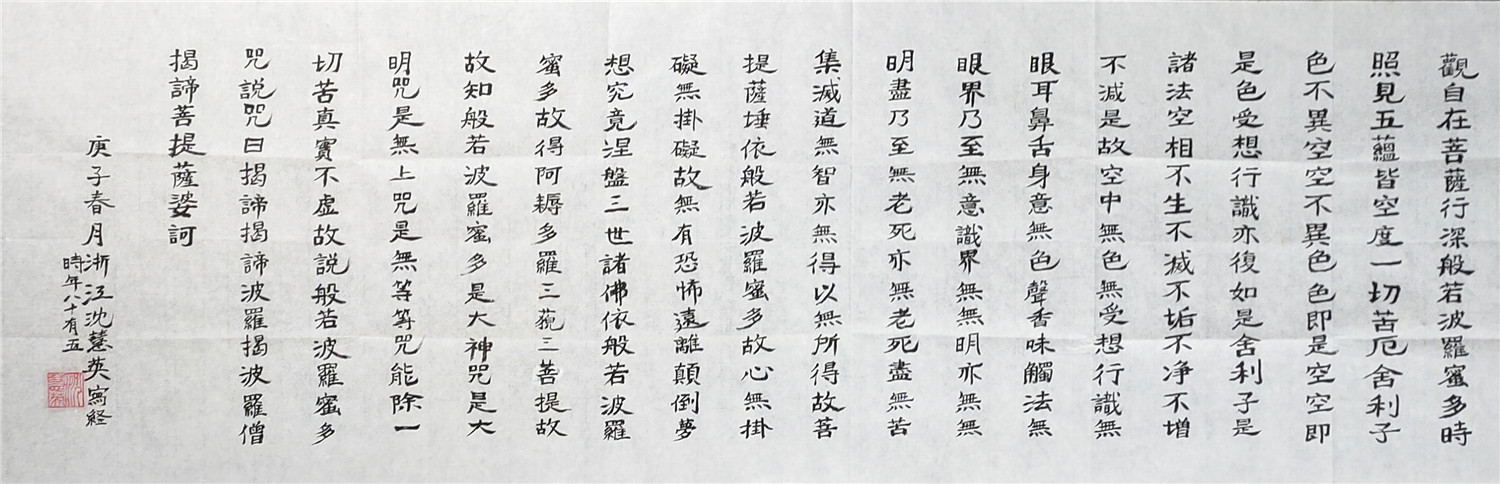 觀自在菩薩行深般若波羅蜜多時
照見五蘊皆空度一切苦厄舍利子
色不異空空不異色色即是空空即
是色受想行識亦復如是舍利子是
諸法空相不生不滅不垢不净不增
不減是故空中無色無受想行識無
眼耳鼻舌身意無色聲香味觸法無
眼界乃至無意識界無無明亦無無
明盡乃至無老死亦無老死盡無苦
集滅道無智亦無得以無所得故菩
提薩埵依般若波羅蜜多故心無掛
礙無掛礙故無有恐怖遠離顛倒夢
想究竟涅盤三世諸佛依般若波羅
蜜多故得阿耨多羅三藐三菩提故
故知般若波羅蜜多是大神咒是大
明咒是無上咒是無等等咒能除一
切苦真實不虛故説般若波羅蜜多
咒説咒曰揭諦揭諦波羅揭波羅僧
揭諦菩提薩娑訶
庚子春月浙江沈慧英寫経
時年八十有五